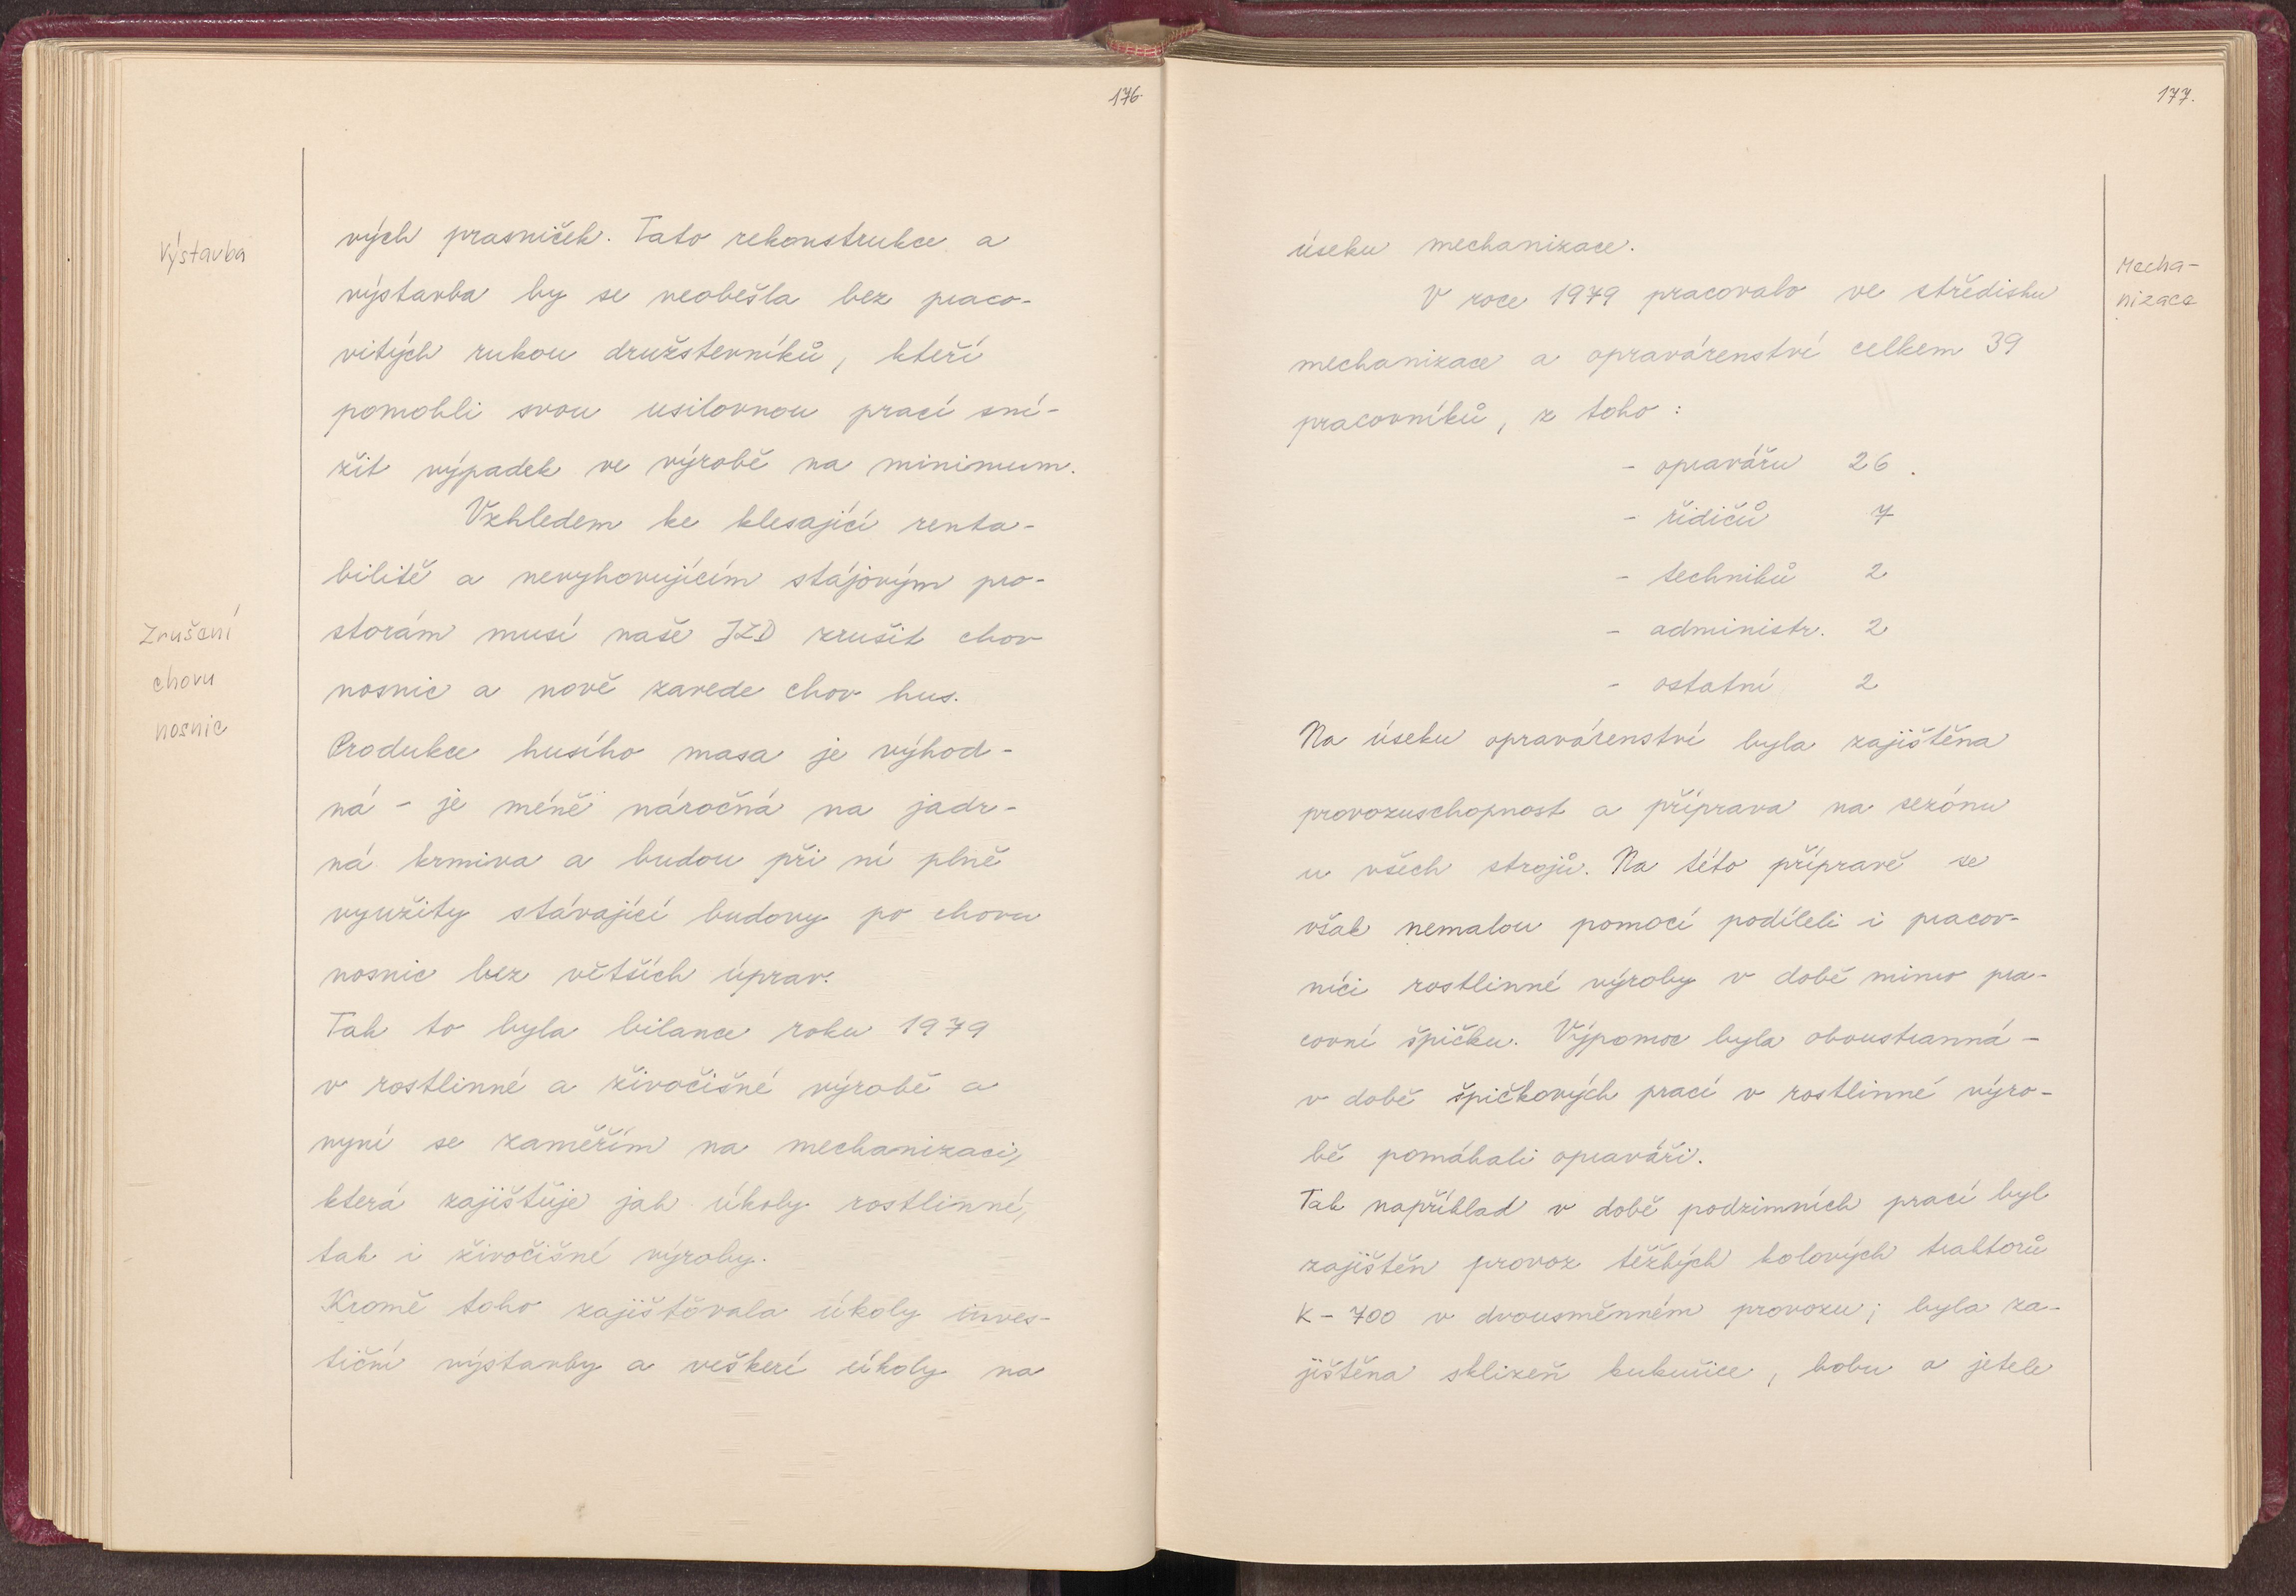 176.
Výstavba
vých prasniček. Tato rekonstrukce a
výstavba by se neobešla bez praco-
vitých rukou družstevníků, kteří
pomohli svou usilovnou prací sní-
žit výpadek ve výrobě na minimum.
Vzhledem ke klesající renta-
bilitě a nevyhovujícím stájovým pro-
Zrušení
chovu
nosnic
storám musí naše JZD zrušit chov
nosnic a nově zavede chov hus.
Produkce husího masa je výhod-
ná - je méně náročná na jadr-
ná krmiva a budou při ní plně
využity stávající budovy po chovu
nosnic bez větších úprav.
Tak to byla bilance roku 1979
v rostlinné a živočišné výrobě a
nyní se zaměřím na mechanizaci,
která zajištuje jak úkoly rostlinné,
tak i živočišné výroby.
Kromě toho zajištovala úkoly inves-
tiční výstavby a veškeré úkoly na
177.
úseku mechanizace.
Mecha-
nizace
V roce 1979 pracovalo ve středisku
mechanizace a opravárenství celkem 39
pracovníků, z toho :
- opravářů 26.
- řidičů 7
- techniků 2
- administr. 2
- ostatní 2
Na úseku opravárenství byla zajištěna
provozuschopnost a příprava na sezónu
u všech strojů. Na této přípravě se
však nemalou pomocí podíleli i pracov-
níci rostlinné výroby v době mimo pra-
covní špičku. Výpomoc byla oboustranná -
v době špičkových prací v rostlinné výro-
bě pomáhali opraváři.
Tak například v době podzimních prací byl
zajištěn provoz těžkých kolových traktorů
K - 700 v dvousměnném provozu; byla za-
jištěna sklizeň kukuřice, bobu a jetele